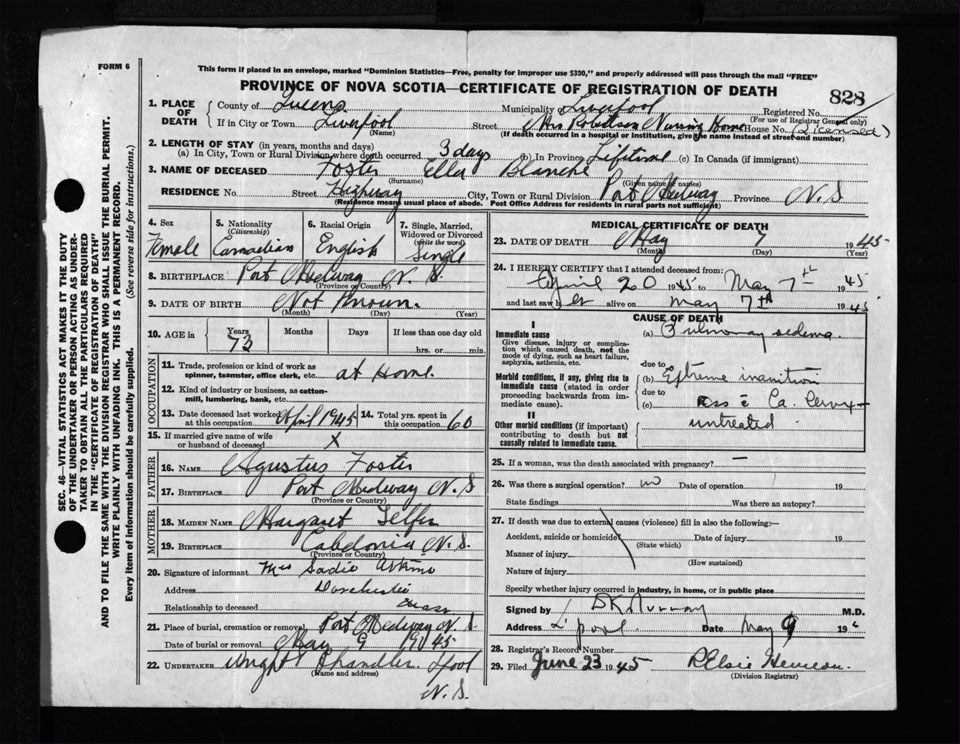 FORM 6
This form if placed in an envelope, marked "Dominion Statistics—Free, penalty for improper use $300," and properly addressed will pass through the mail "FREE"
PROVINCE OF NOVA SCOTIA—CERTIFICATE OF REGISTRATION OF DEATH
828
1. PLACE OF DEATH
County of Queens Municipality of Liverpool Registered No.
(For use of Registrar General only)
If in City or Town Liverpool Street Mrs Robertson Nursing Home House No. (Licensed)
(Name) (If death occurred in a hospital or institution, give the name instead of street and number)
2. LENGTH OF STAY (in years, months and days)
(a) In City, Town or Rural Division where death occurred 3 days (b) In Province Lifetime (c) In Canada (if immigrant)
3. NAME OF DECEASED Foster Ella Blanche
(Surname) (Given name or names)
RESIDENCE No. Street Highway City, Town or Rural Division Port Medway Province N.S
(Residence means usual place of abode. Post Office Address for residents in rural parts not sufficient)
4. Sex
Female
5. Nationality
(Citizenship)
Canadian
6. Racial Origin
English
7. Single, Married, Widowed or Divorced
(write the word)
Single
8. BIRTHPLACE Port Medway N.S.
(Province or Country)
9. DATE OF BIRTH Not Known.
(Month) (Day) (Year)
10. AGE in Years Months Days If less than one day old
73 hrs. or min.
OCCUPATION
11. Trade, profession or kind of work as
spinner, teamster, office clerk, etc. at Home.
12. Kind of industry or business, as cotton-
mill, lumbering, bank, etc.
13. Date deceased last worked at this occupation April 1945 14. Total yrs. spent in this occupation 60
15. If married give name of wife
or husband of deceased X
FATHER
16. NAME Agustus Foster
17. BIRTHPLACE Port Medway N.S
(Province or Country)
MOTHER
18. MAIDEN NAME Margaret Telfer
19. BIRTHPLACE Caledonia N.S.
(Province or Country)
20. Signature of informant Mrs Sadie
Address Dorchester
Relationship to deceased Mass
21. Place of burial, cremation or removal Port Medway N.S.
Date of burial or removal May 9 1945
22. UNDERTAKER Wright Chandler L'pool
(Name and address)
N.S.
MEDICAL CERTIFICATE OF DEATH
23. DATE OF DEATH May 7 1945
(Month) (Day) (Year)
24. I HEREBY CERTIFY that I attended deceased from:
April 20 1945 to May 7th 1945
and last saw her alive on May 7th 1945
CAUSE OF DEATH
I
Immediate cause
Give disease, injury or complica-
tion which caused death, not the
mode of dying, such as heart failure,
asphyxia, asthenia, etc.
(a) Pulmonary edema.
due to
Morbid conditions, if any, giving rise to
immediate cause (stated in order
proceeding backwards from im-
mediate cause).
(b) Extreme inanition
due to
(c) Ca. Cervix
II
Other morbid conditions (if important)
contributing to death but not
causally related to immediate cause.
untreated
25. If a woman, was the death associated with pregnancy? —
26. Was there a surgical operation? no Date of operation 19
State findings Was there an autopsy?
27. If death was due to external causes (violence) fill in also the following:—
Accident, suicide or homicide? Date of injury 19
(State which)
Manner of injury
(How sustained)
Nature of injury
Specify whether injury occurred in industry, in home, or in public place
Signed by D K Murray M.D.
Address L'pool Date May 9 19
28. Registrar's Record Number
29. Filed June 23 1945
(Division Registrar)
SEC. 46—VITAL STATISTICS ACT MAKES IT THE DUTY
OF THE UNDERTAKER OR PERSON ACTING AS UNDER-
TAKER TO OBTAIN ALL THE PARTICULARS REQUIRED
IN THE "CERTIFICATE OF REGISTRATION OF DEATH"
AND TO FILE THE SAME WITH THE DIVISION REGISTRAR WHO SHALL ISSUE THE BURIAL PERMIT.
WRITE PLAINLY WITH UNFADING INK. THIS IS A PERMANENT RECORD.
Every item of information should be carefully supplied. (See reverse side for instructions.)